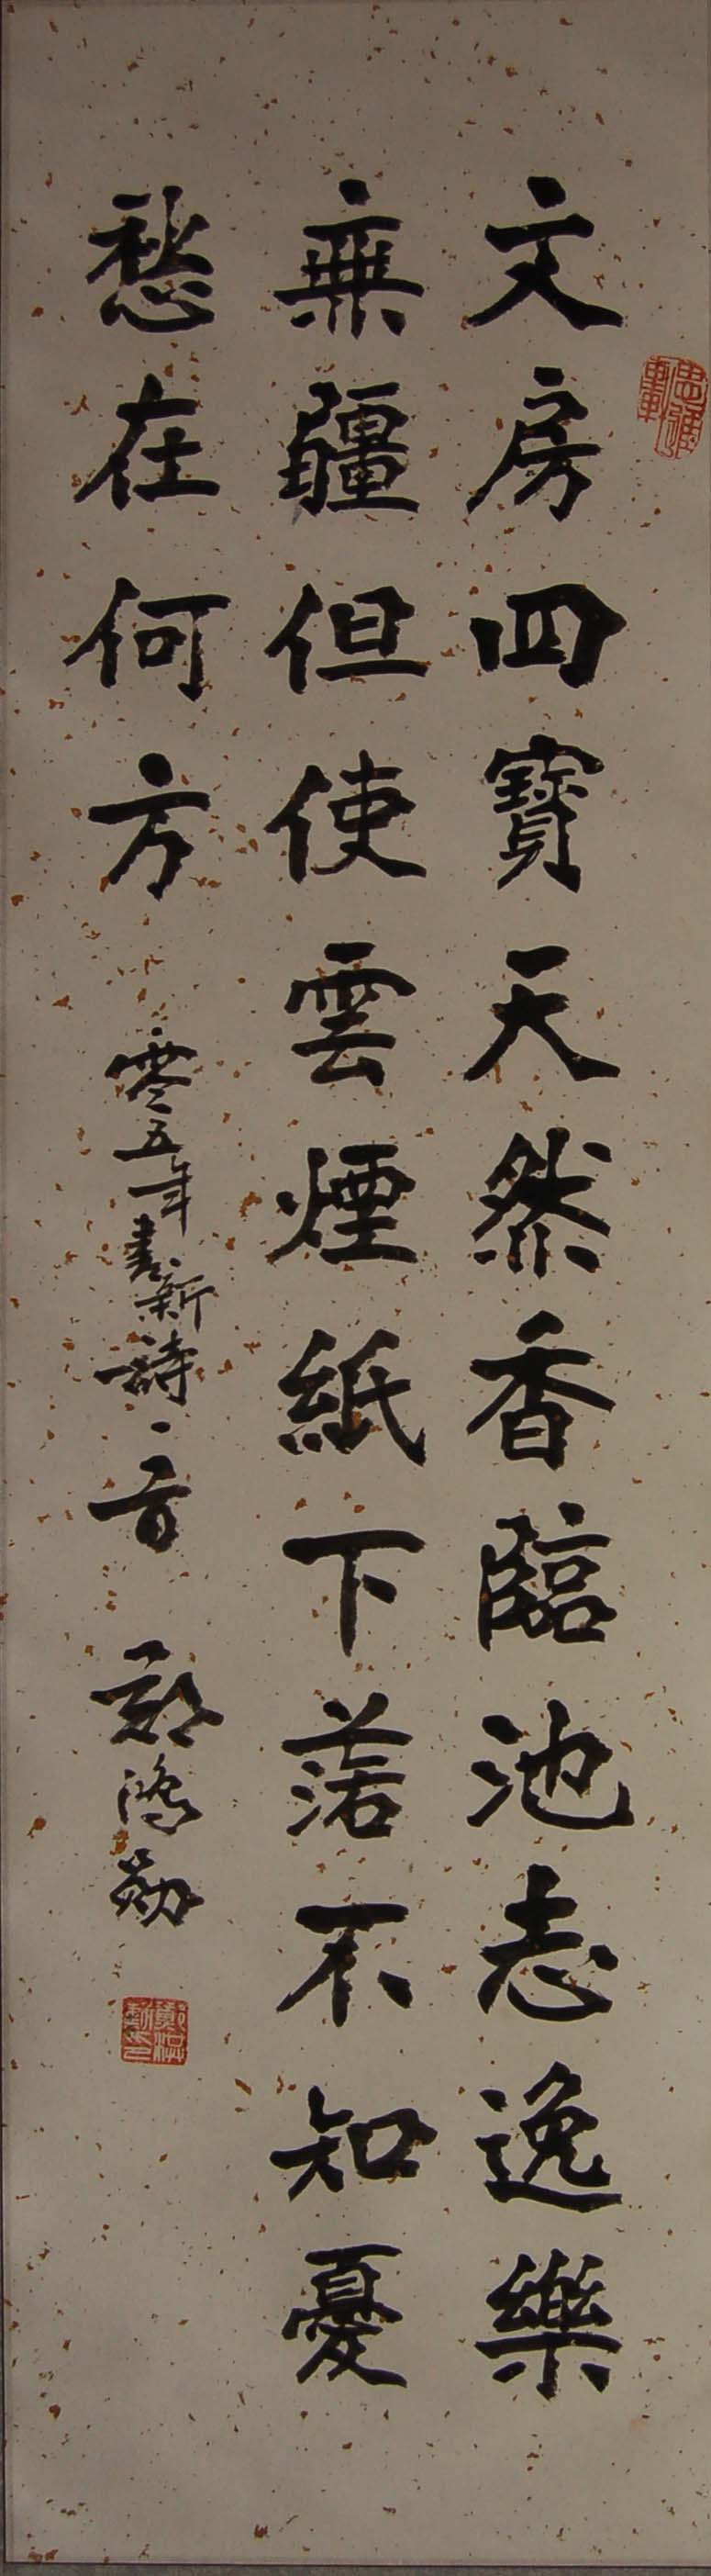 文房四寶天然香臨池志逸樂
無疆但使雲煙紙下落不知憂
愁在何方 零五年書新詩一首 鄭鴻勛